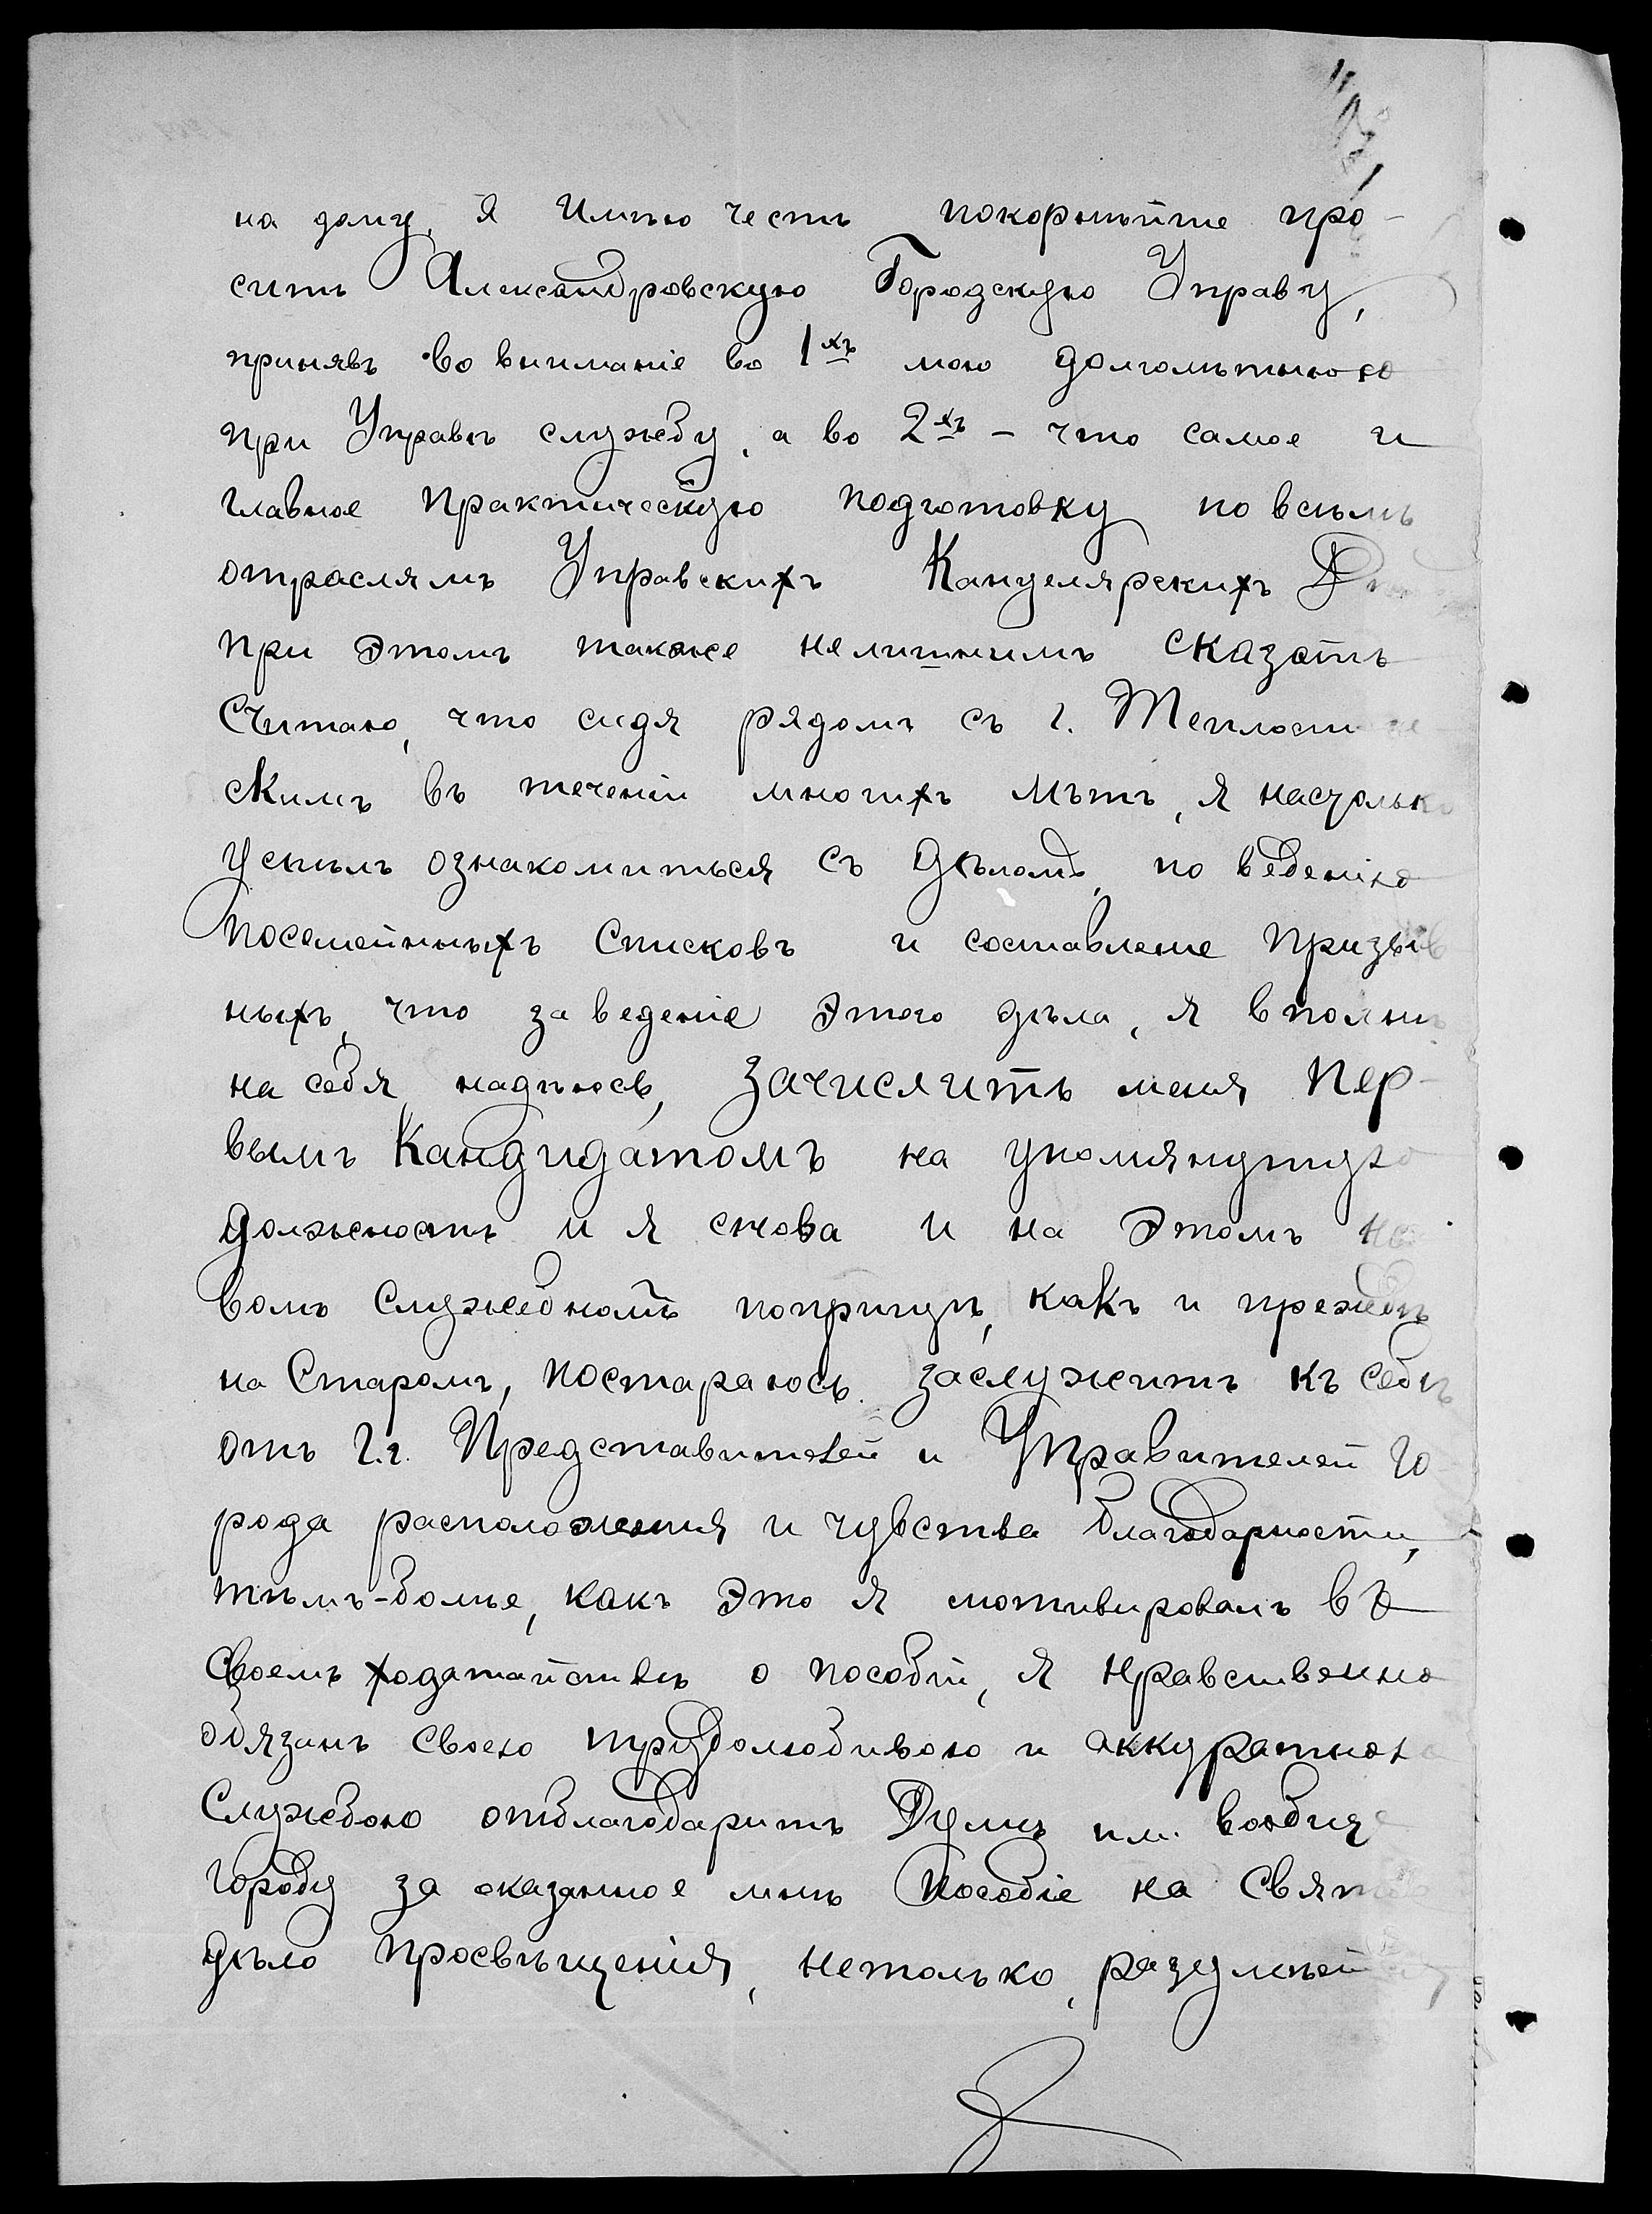 на дому, я имѣю честь покорнѣйше про-
сить Александровскую Городскую Управу,
принявъ во вниманіе во 1хъ мою долголѣтнюю
при Управѣ службу, а во 2хъ – что самое и
главное практическую подготовку по всѣмъ
отраслямъ Управскихъ Канцелярскихъ
при этомъ также нелишнимъ сказать
считаю, что сидя рядомъ съ г.
скимъ въ теченіи многихъ лѣтъ, я настолько
успѣлъ ознакомиться съ дѣломъ, по веденію
посемейныхъ списковъ и составленіе призыв
ныхъ, что за веденіе этого дѣла, я вполнѣ
на себя надѣюсь, зачислить меня пер-
вымъ Кандидатомъ на упомянутую
должность и я снова и на этомъ но
вомъ служебномъ поприщѣ, какъ и прежде
на старомъ, постараюсь заслужить къ себѣ
отъ г.г. Представителей и Управителей го
рода расположенія и чувства благодарности,
тѣмъ-болѣе, какъ это я мотивировалъ въ
своемъ ходатайствѣ о пособіи, я нравственно
обязанъ своею трудолюбивою и аккуратною
службою отблагодарить Думу или вообще
городу за оказанное мнѣ пособіе на Святое
дѣло просвѣщенія, нетолько, разумѣй